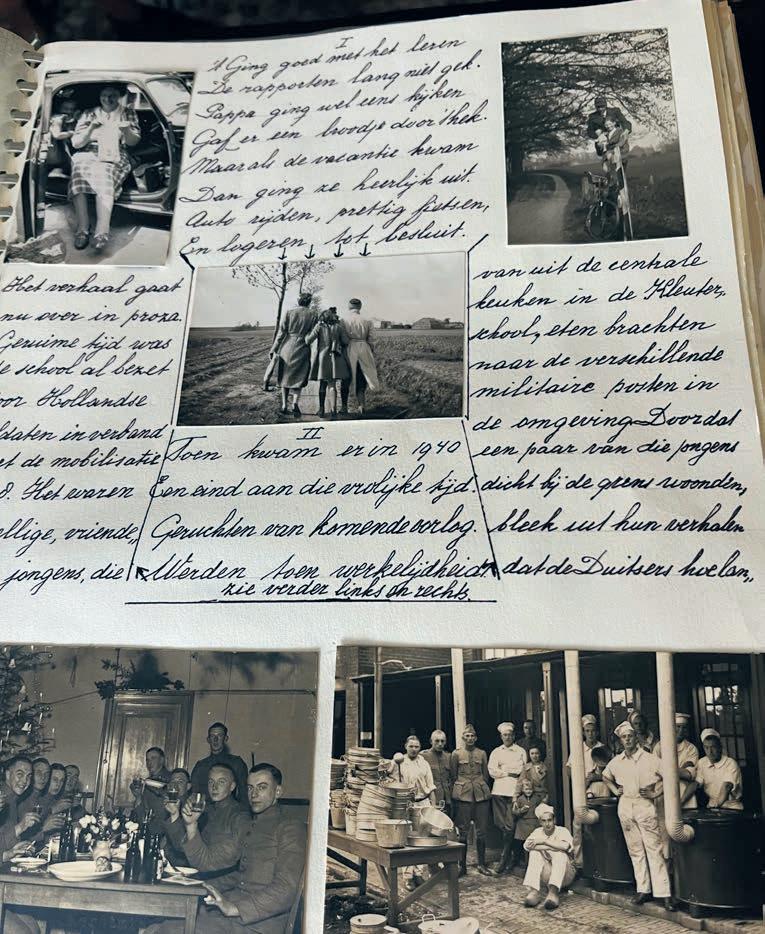 I
't Ging goed met het leren
De rapporten lang niet gek.
Pappa ging wel eens kijken
Gaf er een broodje door 't hek.
Maar als de vacantie kwam
Dan ging ze heerlijk uit.
Auto rijden, prettig fietsen,
En logeren tot besluit.
II
Toen kwam er in 1940
Een eind aan die vrolijke tijd.
Geruchten van komende oorlog.
Werden toen werkelijkheid.
zie verder links en rechts.
Het verhaal gaat
nu over in proza.
Geruime tijd was
de school al bezet
oor Hollandse
ldaten in verband
et de mobilisatie
Het waren
ellige, vriende,,
jongens, die
van uit de centrale
keuken in de Kleuter,,
school, eten brachten
naar de verschillende
militaire posten in
de omgeving. Doordat
een paar van die jongens
dicht bij de grens woonden,
bleek uit hun verhalen
dat de Duitsers hoe lan,,